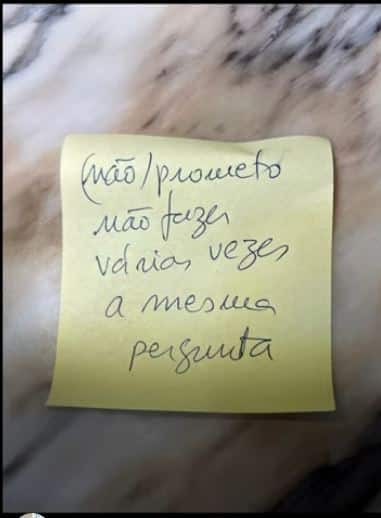 (não/prometo
não fazer
várias vezes
a mesma
pergunta